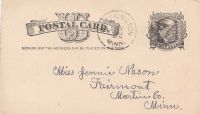 POSTAL CARD.
MINN.
NOTHING BUT THE ADDRESS CAN BE PLACED ON THIS SIDE.
Miss Jennie Nason
Fairmont
Martin Co.
Minn.